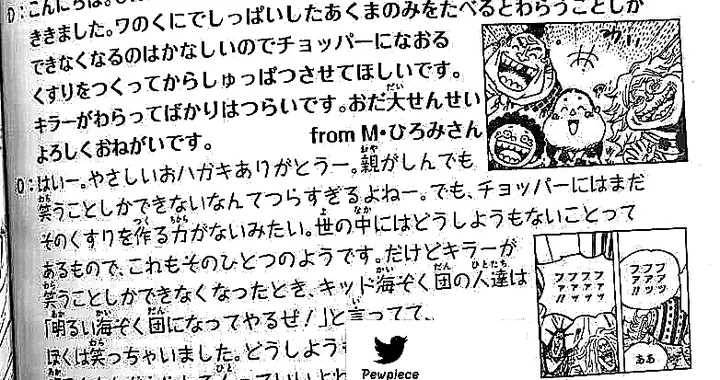 D:こんにちは。
ききました。ワのくにでしっぱいしたあくまのみをたべるとわらうことしか
できなくなるのはかなしいのでチョッパーになおる
くすりをつくってからしゅっぱつさせてほしいです。
キラーがわらってばかりはつらいです。おだ大せんせい
よろしくおねがいです。 from M・ひろみさん
O:はいー。やさしいおハガキありがとうー。親がしんでも
笑うことしかできないなんてつらすぎるよねー。でも、チョッパーにはまだ
そのくすりを作る力がないみたい。世の中にはどうしようもないことって
あるもので、これもそのひとつのようです。だけどキラーが
笑うことしかできなくなったとき、キッド海ぞく団の人達は
「明るい海ぞく団になってやるぜ!」と言ってて、
ぼくは笑っちゃいました。どうしよう
ファッファッファッ!!
ファッファッファッ!!
ああ
Pewpiece